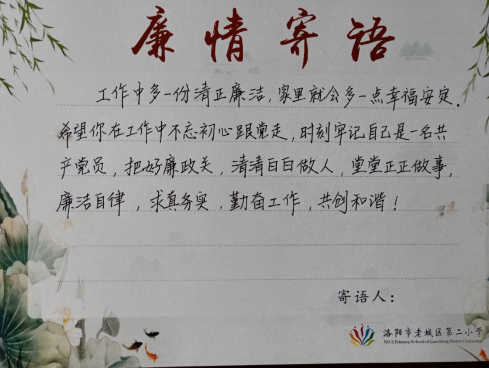 廉情寄语
工作中多一份清正廉洁，家里就会多一点幸福安定．
希望你在工作中不忘初心跟党走，时刻牢记自己是一名共
产党员，把好廉政关，清清白白做人，堂堂正正做事，
廉洁自律，求真务实，勤奋工作，共创和谐！
寄语人：
洛阳市老城区第二小学